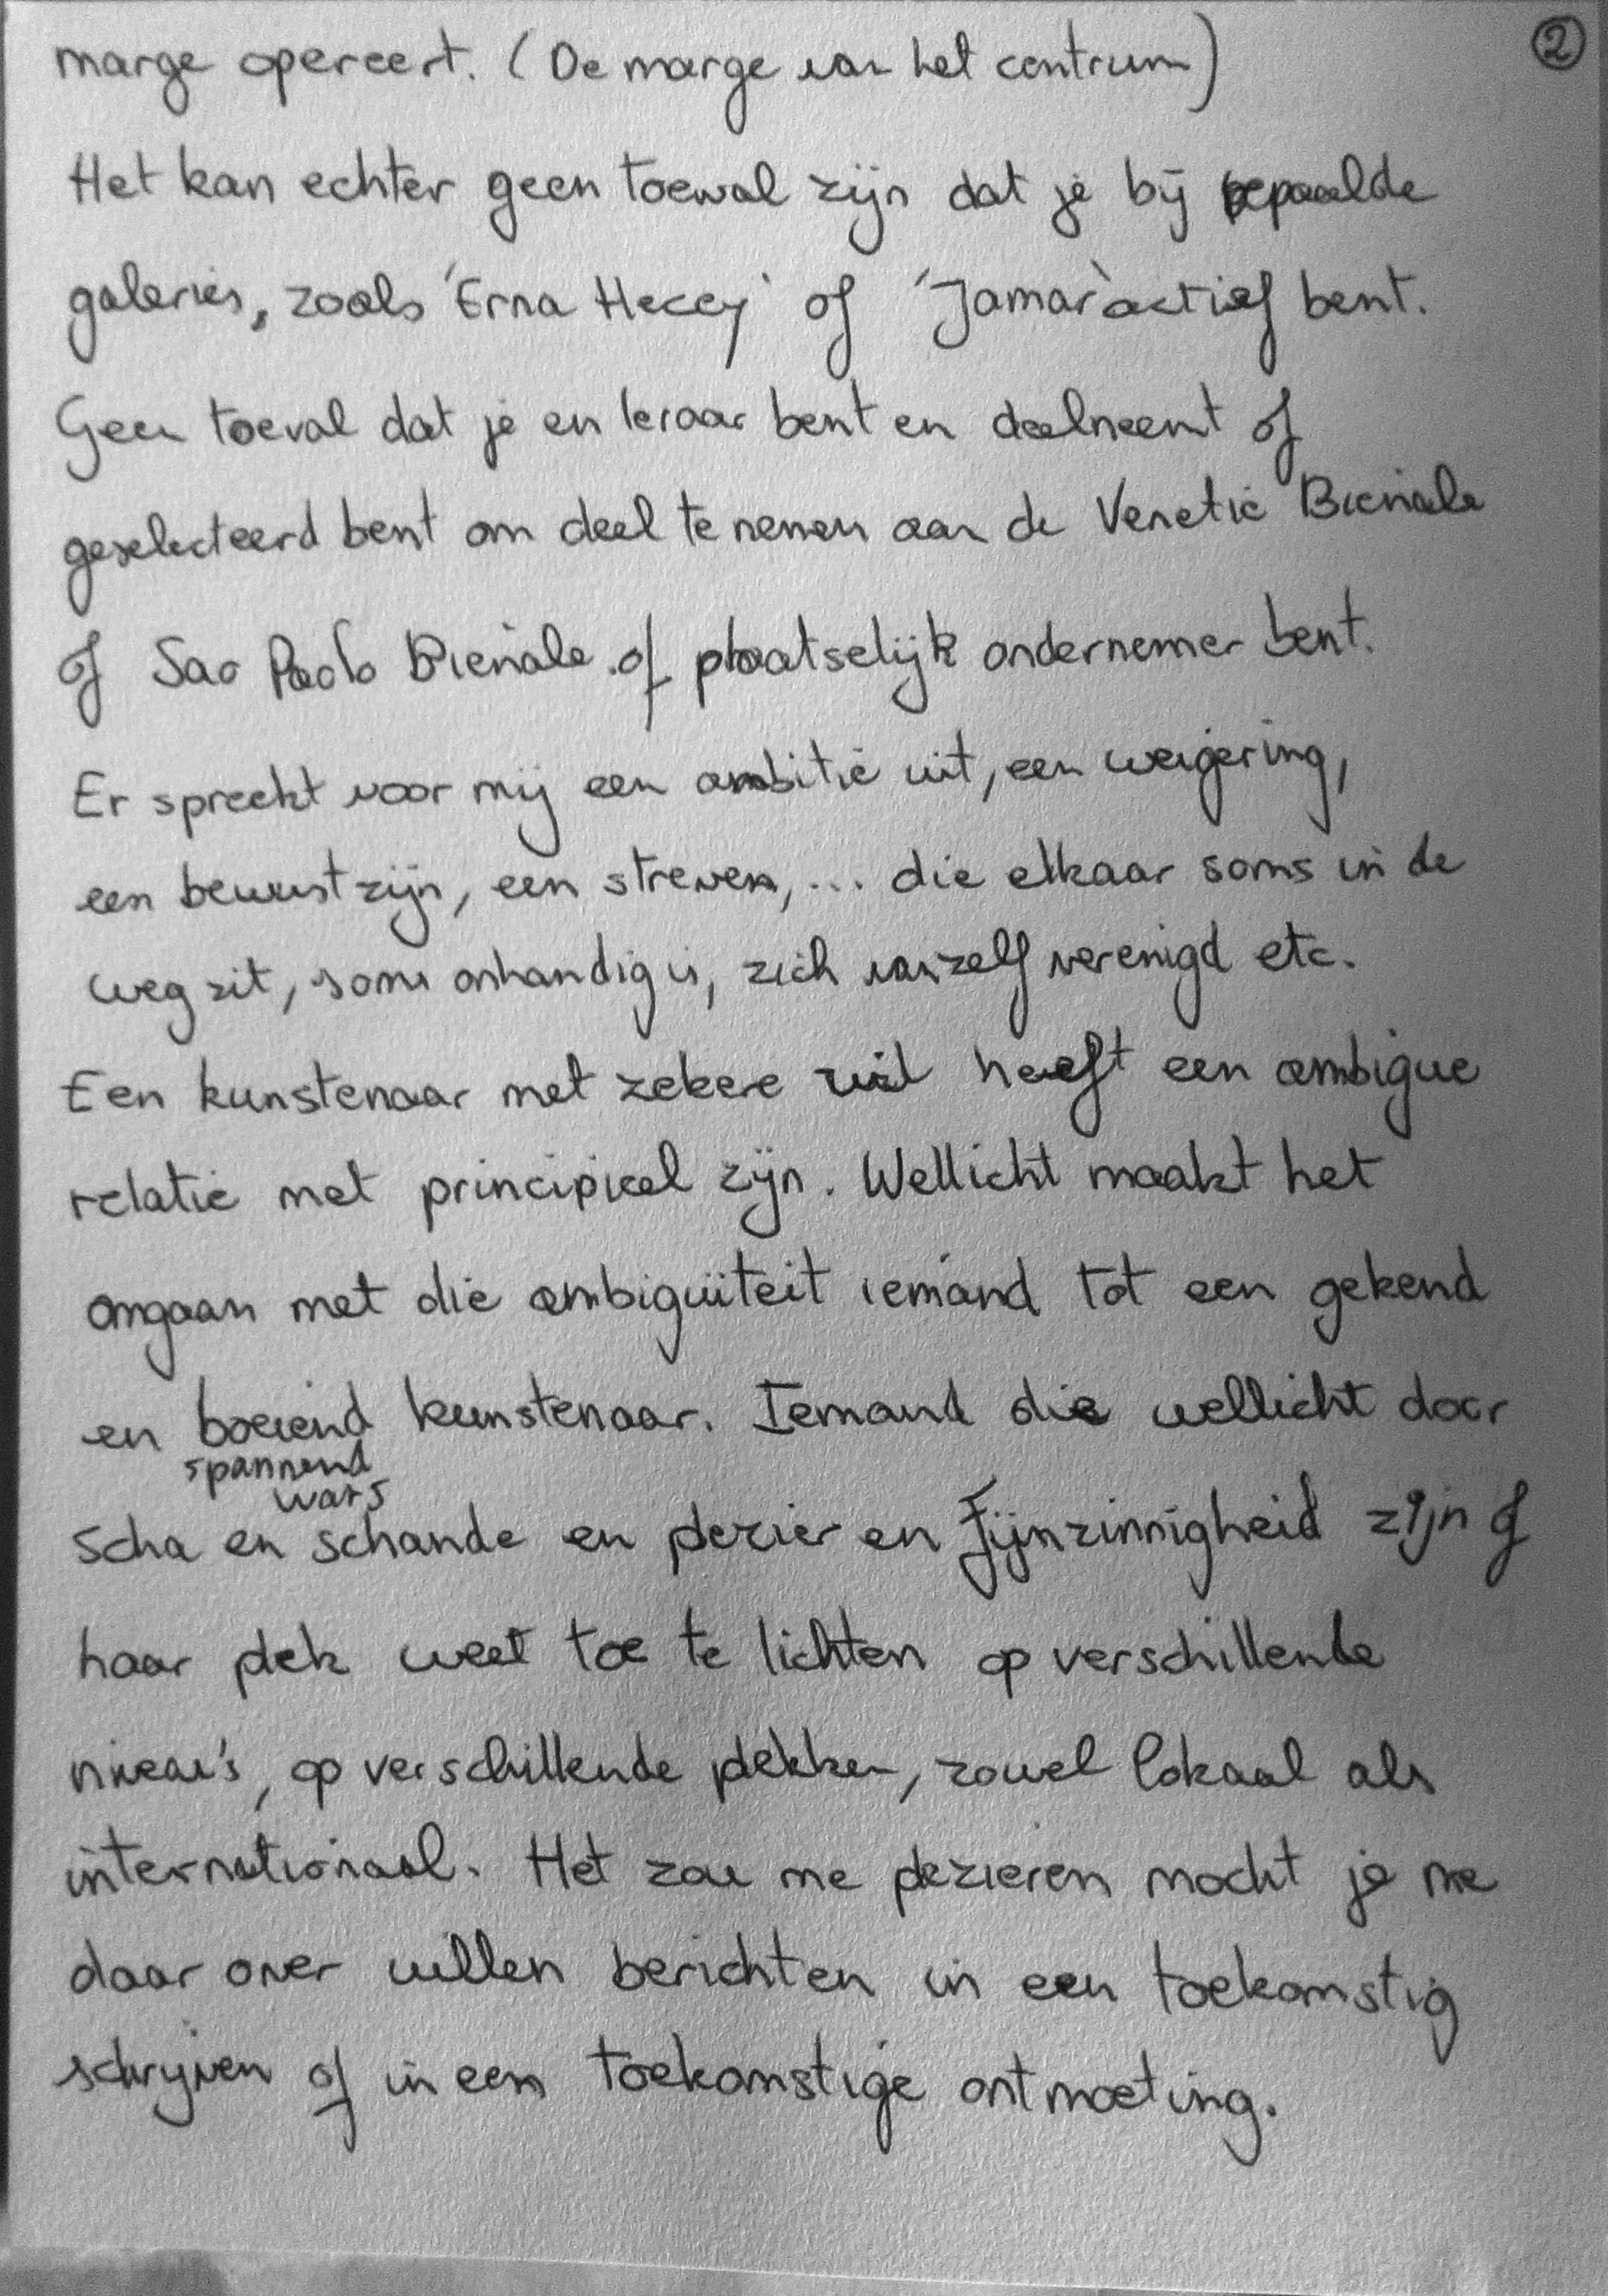 ②
marge opereert. (De marge van het centrum)
Het kan echter geen toeval zijn dat je bij bepaalde
galeries, zoals 'Erna Hecey' of 'Jamar' actief bent.
Geen toeval dat je en leraar bent en deelneemt of
geselecteerd bent om deel te nemen aan de Venetië Bienale
of Sao Paolo Bienale of plaatselijk ondernemer bent.
Er spreekt voor mij een ambitie uit, een weigering,
een bewust zijn, een streven, ... die elkaar soms in de
weg zit, soms onhandig is, zich vanzelf verenigd etc.
Een kunstenaar met zekere wil heeft een ambigue
relatie met principieel zijn. Wellicht maakt het
omgaan met die ambiguïteit iemand tot een gekend
en boeiend kunstenaar. Iemand die wellicht door
spannend
wars
scha en schande en plezier en fijnzinnigheid zijn of
haar plek weet toe te lichten op verschillende
niveau's, op verschillende plekken, zowel lokaal als
internationaal. Het zou me plezieren mocht je me
daar over willen berichten in een toekomstig
schrijven of in een toekomstige ontmoeting.